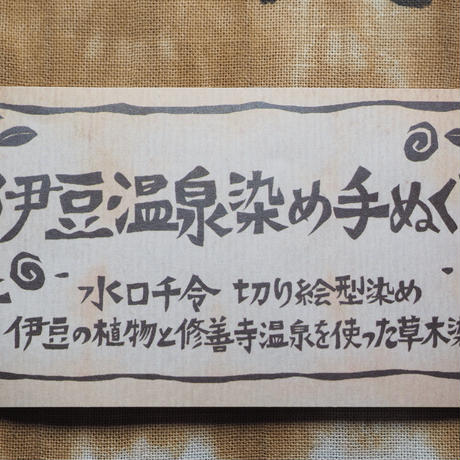 伊豆温泉染め手ぬぐ
水口千令 切り絵型染め
伊豆の植物と修善寺温泉を使った草木染